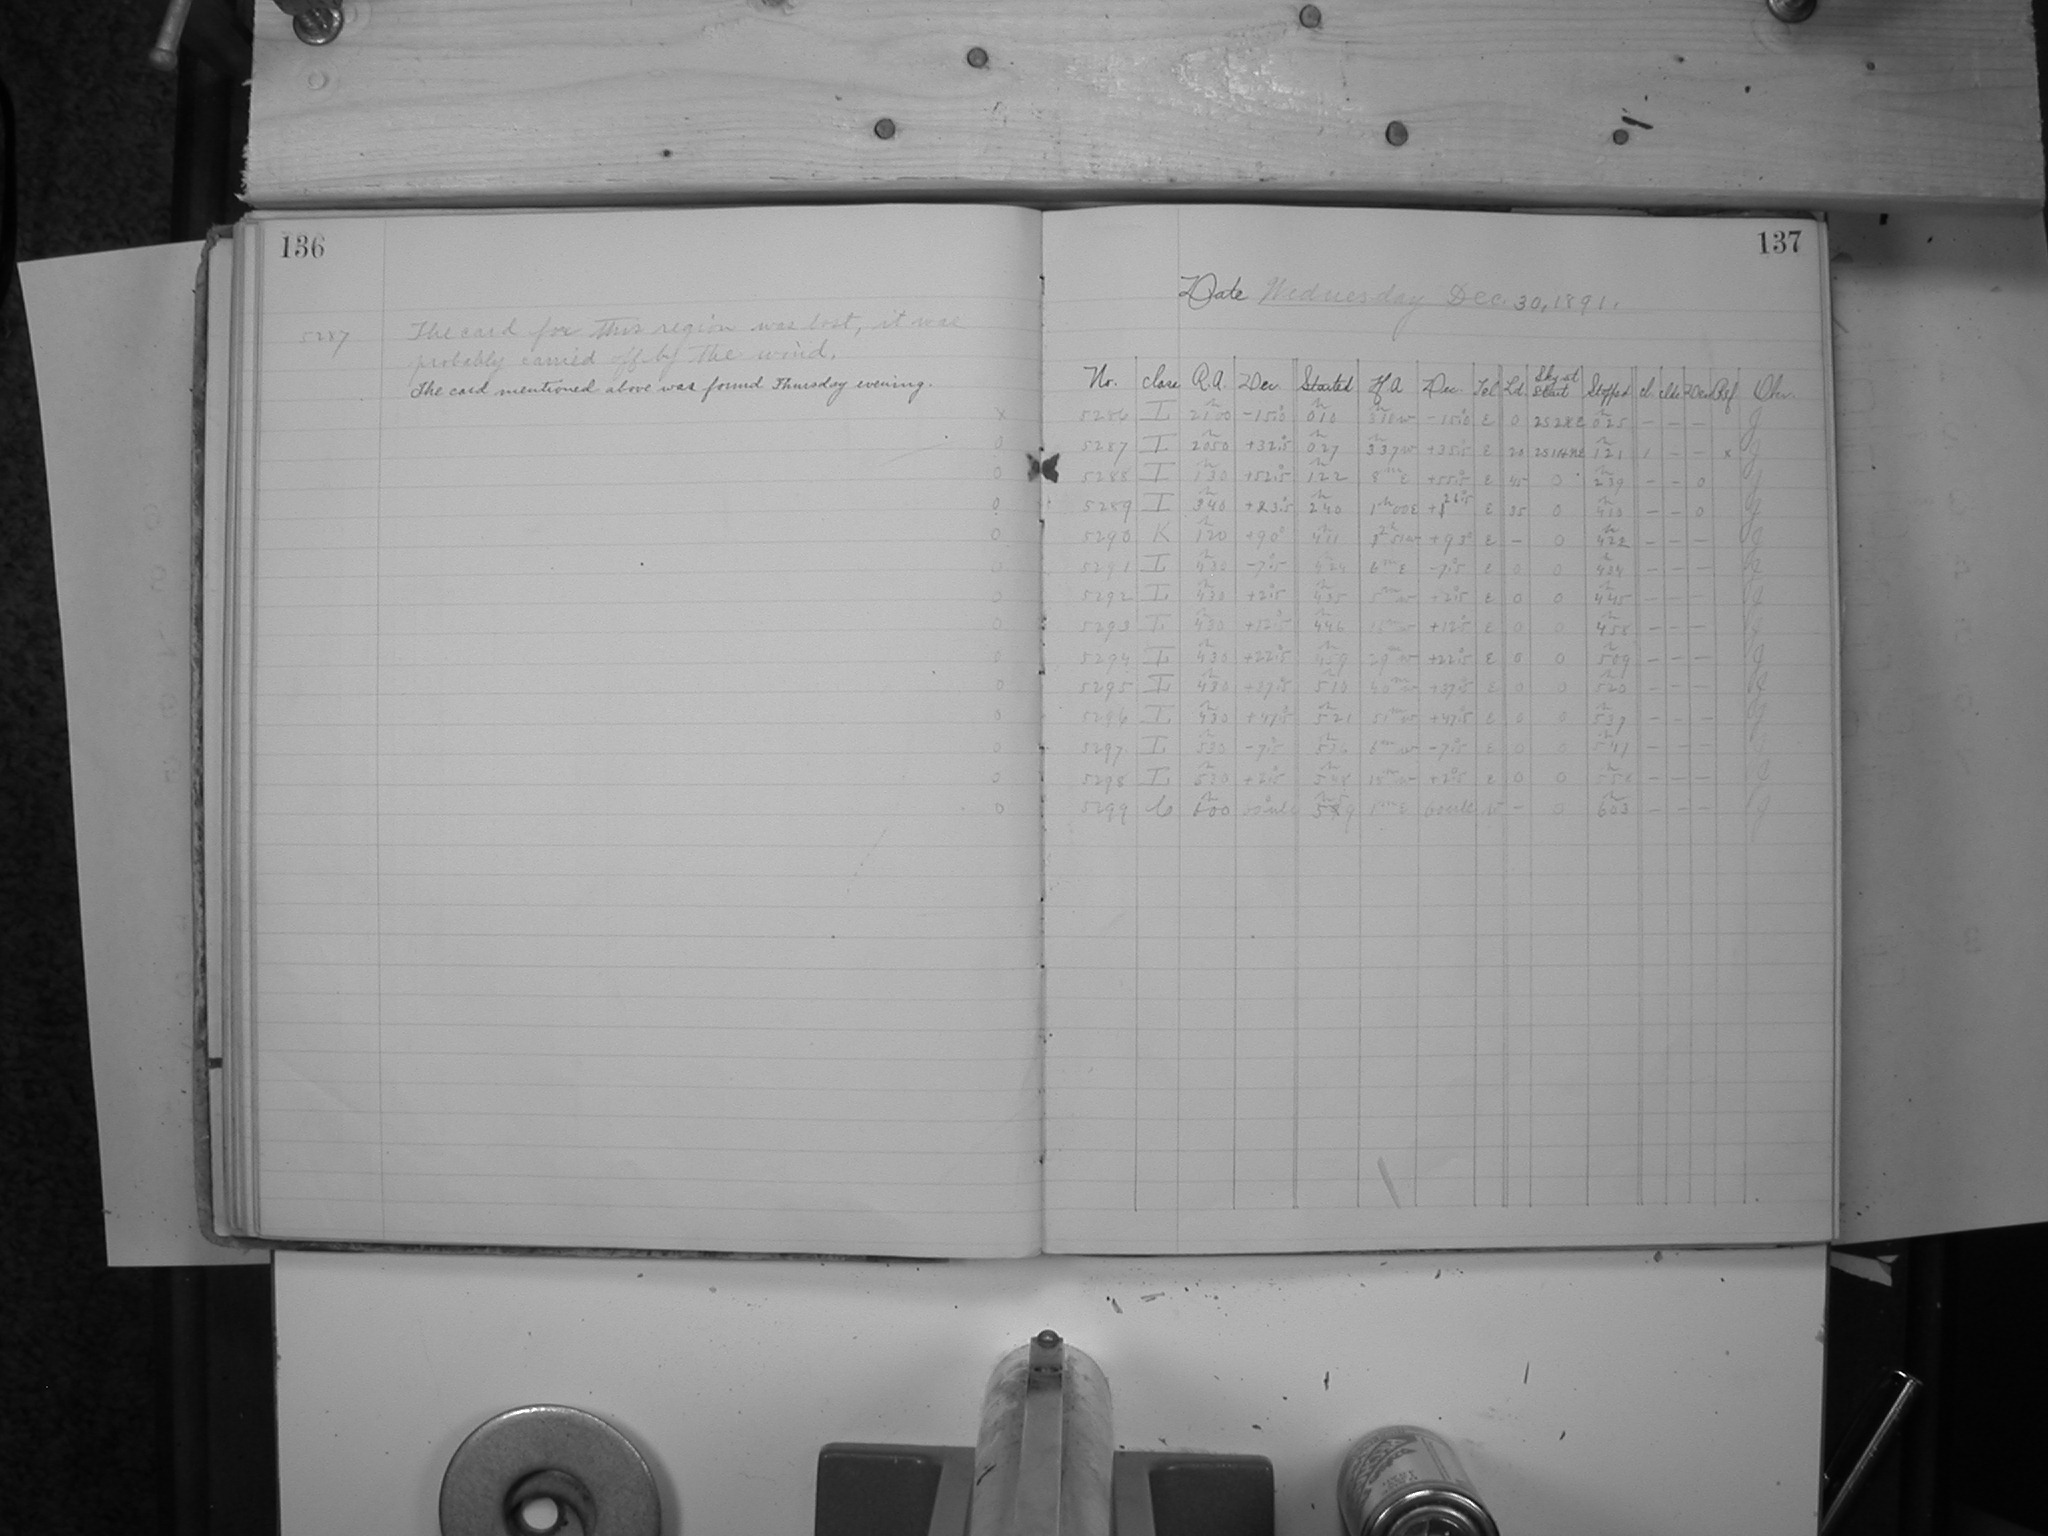 136
5287 The card for this region was lost, it was
probably carried off by the wind.
The card mentioned above was found Thursday evening.
137
Date Wednesday Dec. 30, 1891.
No. Class R.A. Dec. Started H A Dec. Tel Ld. Sky at Start Stopped cl. Dec Ref Obs.
x 5286 I 21 00 -15.0 0 10 -15.0 E 0 0 25 - - - J
0 5287 I 20 50 +32.5 0 27 3 37 W +35.5 E 20 1 21 1 - - x J
0 5288 I 1 30 +52.5 1 22 8m E +55.5 E 45 0 2 39 - - 0 J
0 5289 I 3 40 +23.5 2 40 1h 00 E +26.5 E 35 0 4 10 - - 0 J
0 5290 K 1 20 +90° 4 11 +90° E - 0 4 22 - - - J
0 5291 I 4 30 -7.5 4 24 6m E -7.5 E 0 0 4 34 - - - J
0 5292 I 4 30 +2.5 4 35 5m W +2.5 E 0 0 4 45 - - - J
0 5293 I 4 30 +12.5 4 46 16m W +12.5 E 0 0 4 58 - - - J
0 5294 I 4 30 +22.5 4 59 29m W +22.5 E 0 0 5 09 - - - J
0 5295 I 4 30 +37.5 5 10 40m W +37.5 E 0 0 5 20 - - - J
0 5296 I 4 30 +47.5 5 21 51m W +47.5 E 0 0 5 37 - - - J
0 5297 I 5 30 -7.5 5 36 6m W -7.5 E 0 0 5 47 - - - J
0 5298 I 5 30 +2.5 5 48 18m W +2.5 E 0 0 5 58 - - - J
0 5299 C 6 00 5 59 1m E W - 0 6 03 - - - J